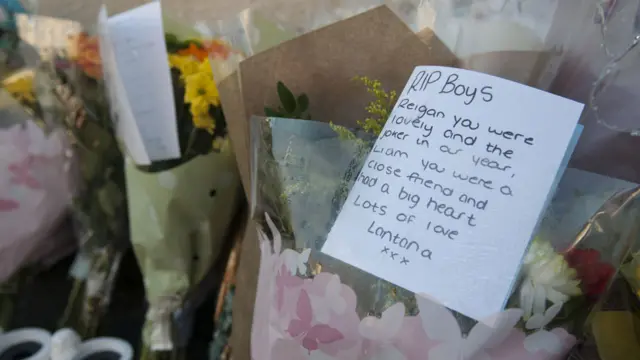 RIP Boys
Reigan you were
lovely and the
joker in our year,
Liam you were a
close friend and
had a big heart
Lots of love
Lantana
xxx